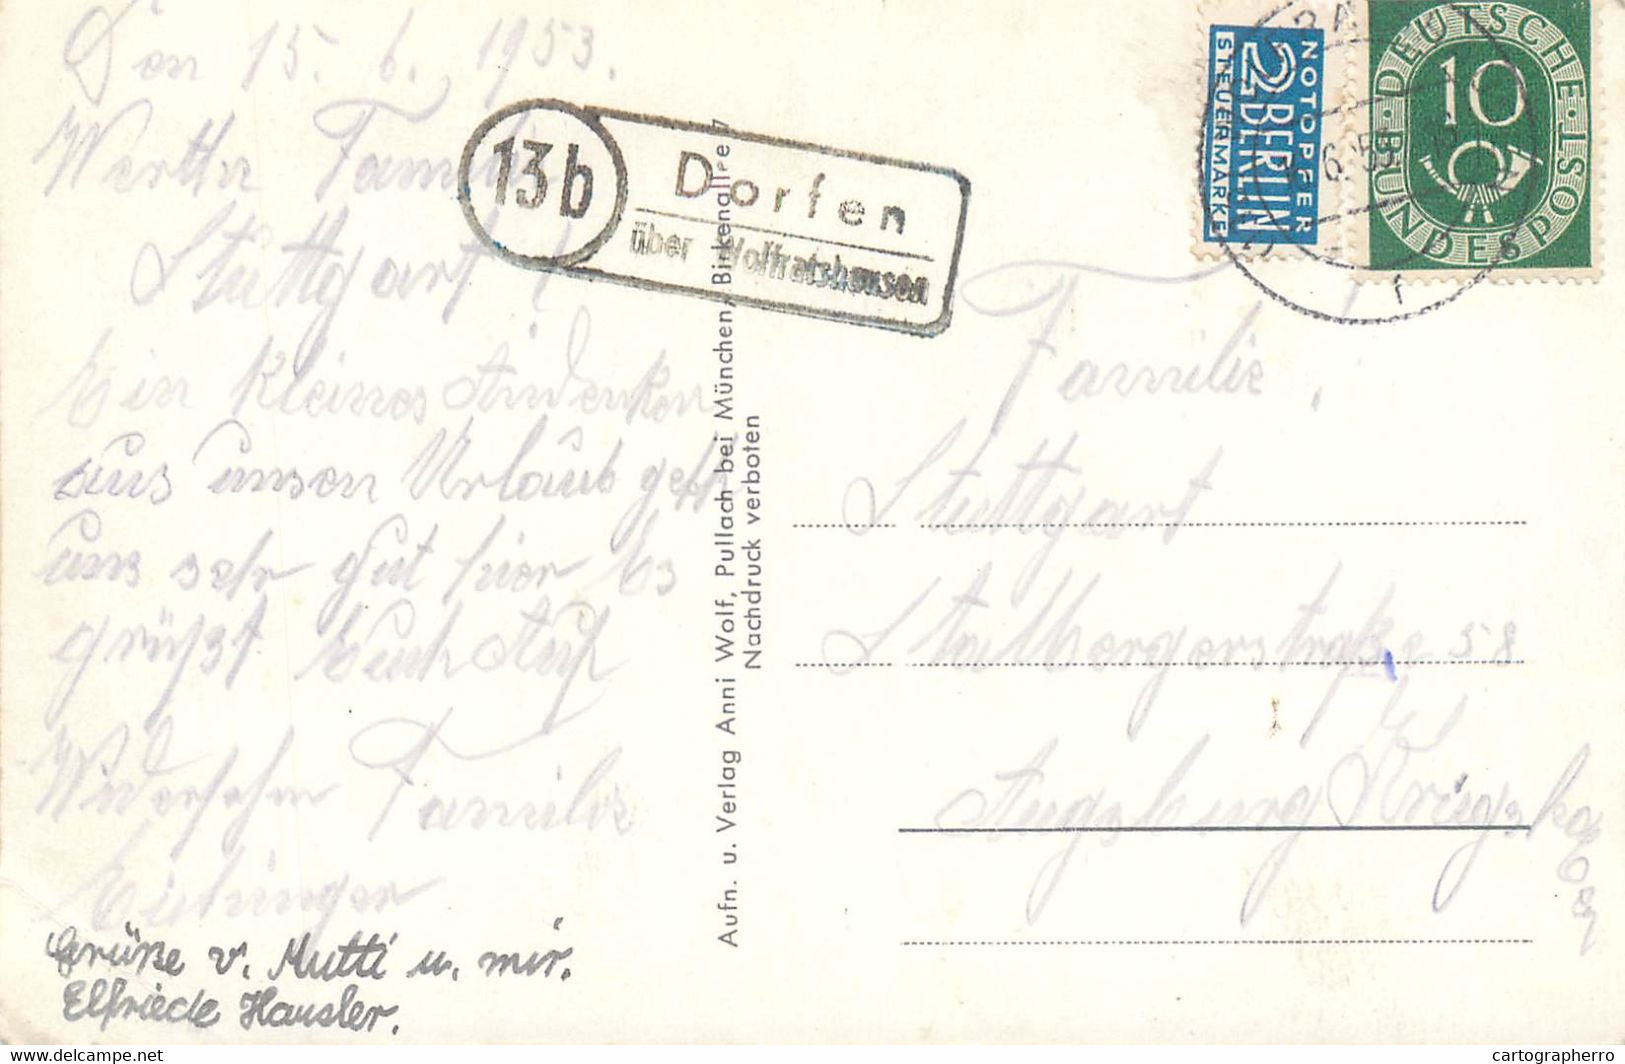 Den 15. 6. 1953.
Werthe Familie
Stuttgart!
Ein kleines Andenken
aus unsern Urlaub
uns sehr gut hier Es
grüßt Euch Auf
Familie
Grüße v. Mutti u. mir.
Elfriede Hausler.
13b
Dorfen
über Wolfratshausen
Aufn. u. Verlag Anni Wolf, Pullach bei München, Birkenallee 7
Nachdruck verboten
NOTOPFER
2 BERLIN
STEUERMARKE
DEUTSCHE · POST
10
BUNDESPOST
Familie
Stuttgart
58
Augsburg
www.delcampe.net
cartographerro